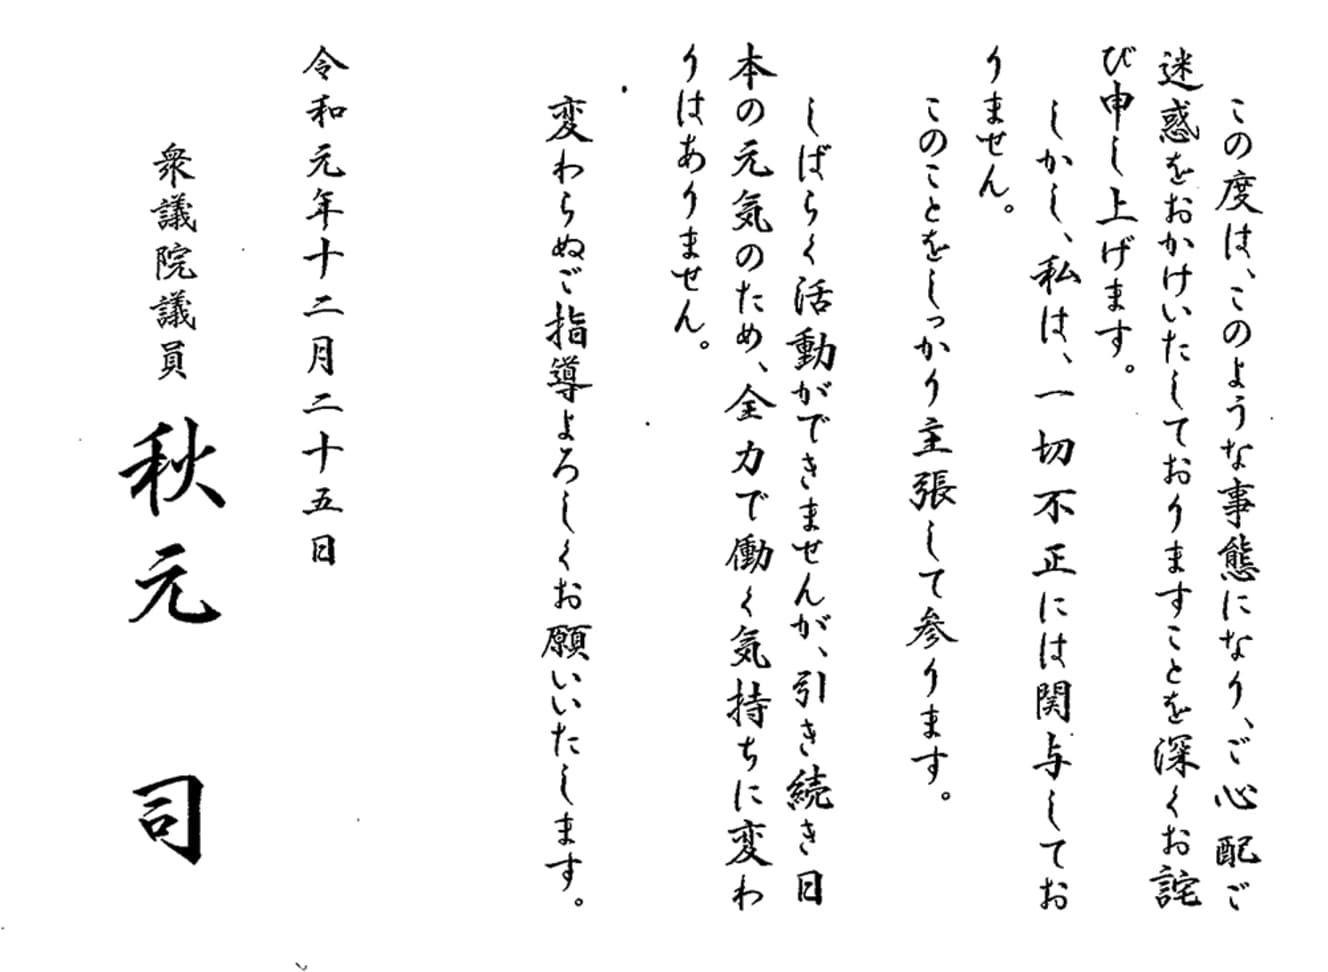 この度は、このような事態になり、ご心配ご
迷惑をおかけいたしておりますことを深くお詫
び申し上げます。
しかし、私は、一切不正には関与してお
りません。
このことをしっかり主張して参ります。
しばらく活動ができませんが、引き続き日
本の元気のため、全力で働く気持ちに変わ
りはありません。
変わらぬご指導よろしくお願いいたします。
令和元年十二月二十五日
衆議院議員 秋元 司